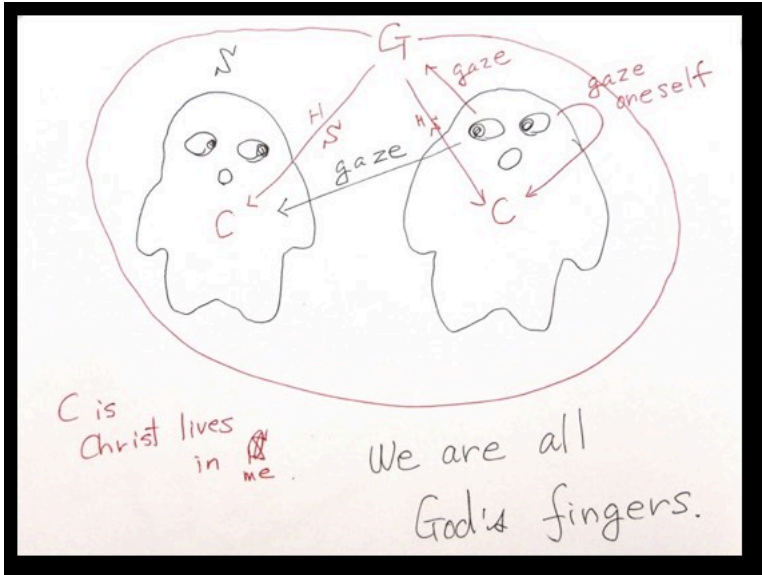 G
gaze
gaze
oneself
H
S
H S
gaze
C
C
C is
Christ lives
in
me.
We are all
God's fingers.